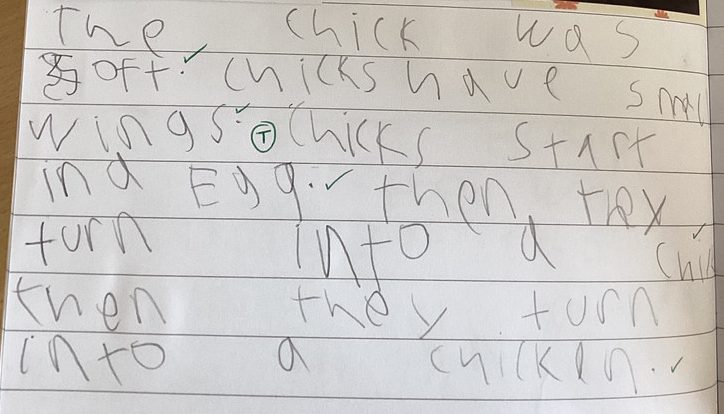 The chick was
soft. chicks have small
wings. T Chicks start
in a Egg. then they
turn into a chick
then they turn
into a chicken.